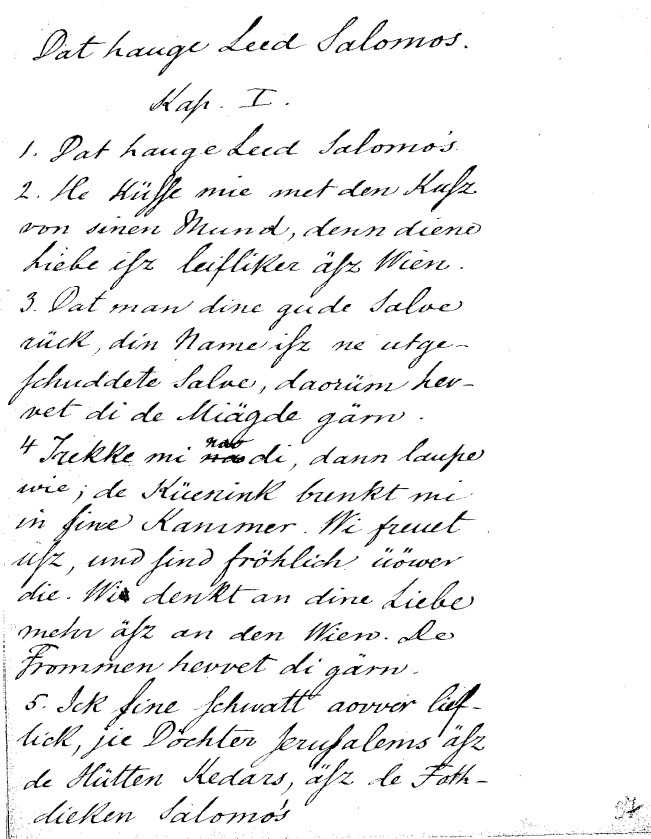 Dat hauge Leed Salomos.
Kap. I.
1. Dat hauge Leed Salomo's
2. He Küsse mie met den Kusz
von sinen Mund, denn diene
Liebe isz leifliker äsz Wien.
3. Dat man dine gude Salve
rück, din Name isz ne utge-
schuddete Salve, daorüm hev-
vet di de Miägde gärn.
4 Trekke mi nao di, dann laupe
wie; de Küenink brenkt mi
in sine Kammer. Wi freuet
usz, und sind fröhlich üöwer
die. Wi denkt an dine Liebe
mehr äsz an den Wien. De
Frommen hevvet di gärn.
5. Ick sine schwatt aovver lief-
lick, jie Döchter Jerusalems äsz
de Hütten Kedars, äsz de Foth-
dieken Salomo's
37